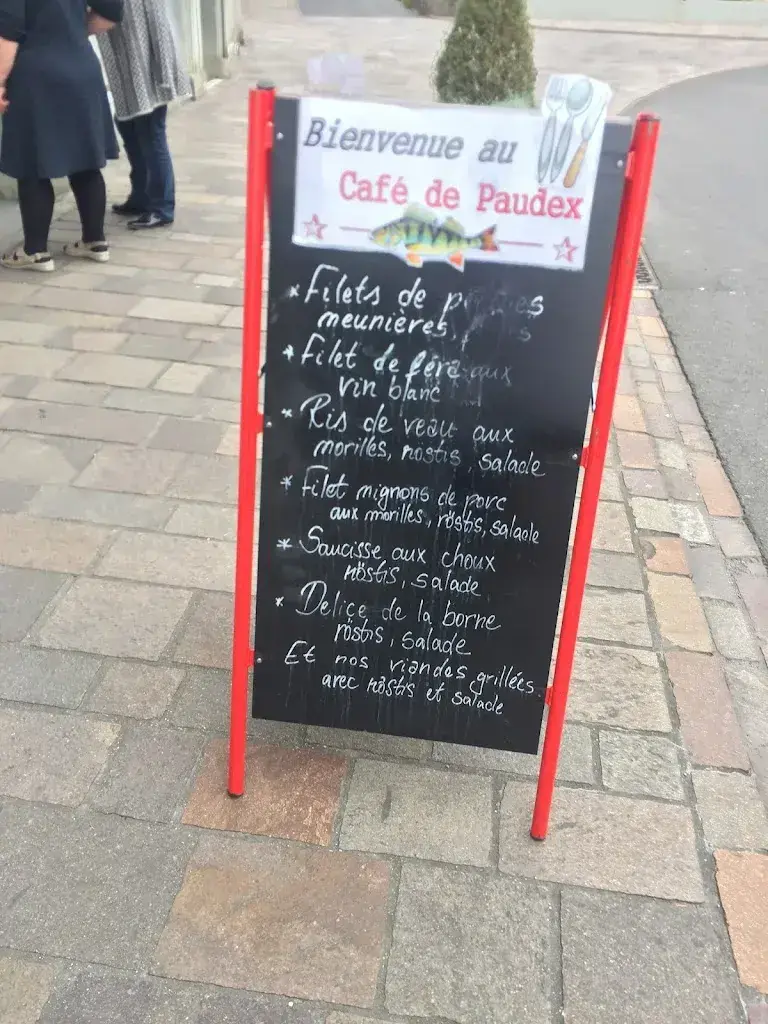 Bienvenue au
Café de Paudex
*Filets de
meunières,
*Filet de féra aux
vin blanc
* Ris de veau aux
morilles, röstis, salade
* Filet mignons de porc
aux morilles, röstis, salade
* Saucisse aux choux
röstis, salade
* Delice de la borne
röstis, salade
Et nos viandes grillées
avec röstis et salade